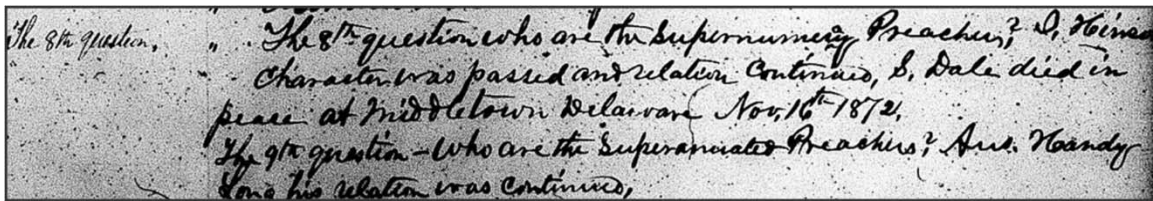 The 8th question, " The 8th question who are the Supernumery Preachers? S. Hinson
Character was passed and relation Continued, S. Dale died in
peace at Middletown Delaware Nov, 16th 1872,
The 9th question - Who are the Superanuated Preachers? Ans. Handy
Long his relation was continued,